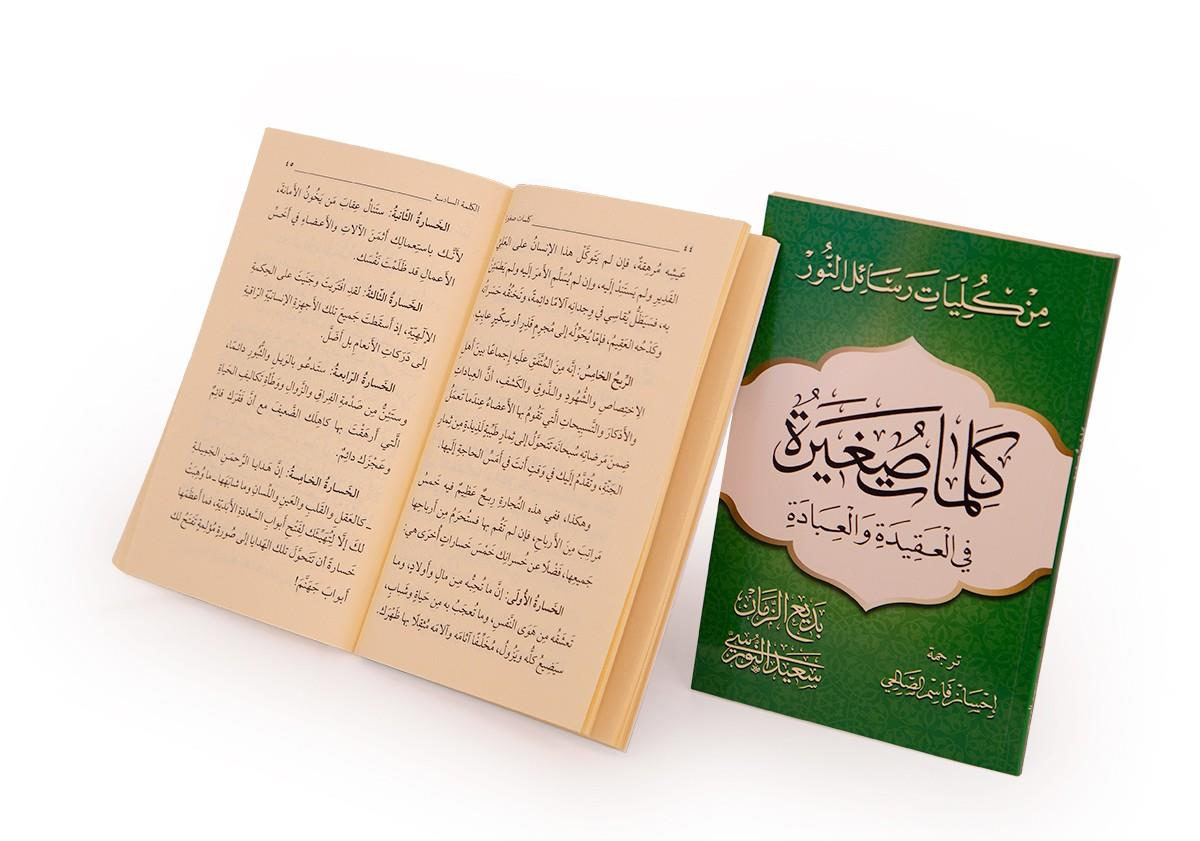 من كليات رسائل النور
كلمات صغيرة
في العقيدة والعبادة
بديع الزمان
سعيد النورسي
ترجمة
إحسان قاسم الصالحي
٤٤ كلمات صغيرة
عَيشِه مُرهِقةٌ، فإن لم يَتَوكَّل هذا الإنسانُ على العَليِّ
القَديرِ ولم يَستَنِدْ إليه، وإن لم يُسَلِّم الأمرَ إليه ولم يَطمَئِنَّ
به، فسَيَظَلُّ يُقاسِي في وِجدانِه آلامًا دائمةً، وتَخنُقُه حَسَراتُه
وكَدحُه العَقِيمُ، فإمّا يُحَوِّلُه إلى مُجرِمٍ قَذِرٍ أو سِكِّيرٍ عابِثٍ.
الرِّبحُ الخامِسُ: إنَّه مِنَ المُتَّفَقِ عليه إجماعًا بينَ أهلِ
الاختِصاصِ والشُّهُودِ والذَّوقِ والكَشفِ، أنَّ العِباداتِ
والأذكارَ والتَّسبِيحاتِ الَّتي تَقُومُ بها الأعضاءُ عِندَما تَعمَلُ
ضِمنَ مَرضاتِه سُبحانَه تَتَحوَّلُ إلى ثِمارٍ طَيِّبةٍ لَذِيذةٍ مِن ثِمارِ
الجَنّةِ، وتُقَدَّمُ إلَيك في وَقتٍ أنتَ في أمَسِّ الحاجةِ إلَيها.
وهكذا، ففي هذه التِّجارةِ رِبحٌ عَظِيمٌ فيه خَمسُ
مَراتِبَ مِنَ الأرباحِ، فإن لم تَقُم بها فستُحرَمُ مِن أرباحِها
جَمِيعِها، فَضْلًا عن خُسرانِك خَمْسَ خَساراتٍ أُخرَى هي:
الخَسارةُ الأُولَى: إنَّ ما تُحِبُّه مِن مالٍ وأَولادٍ، وما
تَعشَقُه مِن هَوَى النَّفْسِ، وما تُعجَبُ به مِن حَياةٍ وشَبابٍ،
سيَضِيعُ كلُّه ويَزُولُ، مُخَلِّفًا آثامَه وآلامَه مُثقِلًا بها ظَهْرَك.
الكلمة السادسة ٤٥
الخَسارةُ الثّانيةُ: ستَنالُ عِقابَ مَن يَخُونُ الأمانةَ،
لأنَّك باستِعمالِك أثمَنَ الآلاتِ والأعضاءِ في أخَسِّ
الأعمالِ قد ظَلَمْتَ نَفْسَك.
الخَسارةُ الثّالثةُ: لقدِ افتَرَيتَ وجَنَيتَ على الحِكمةِ
الإلٰهِيّةِ، إذ أَسقَطتَ جَمِيعَ تلك الأجهِزةِ الإنسانيّةِ الرّاقيةِ
إلى دَرَكاتِ الأنعامِ بل أضَلَّ.
الخَسارةُ الرّابعةُ: ستَدعُو بالوَيلِ والثُّبُورِ دائمًا،
وستَئِنُّ مِن صَدْمةِ الفِراقِ والزَّوالِ ووَطْأةِ تَكاليفِ الحَياةِ
الَّتي أرهَقْتَ بها كاهِلَك الضَّعِيفَ مع أنَّ فَقْرَك قائِمٌ
وعَجْزَك دائمٌ.
الخَسارةُ الخامِسةُ: إنَّ هَدايا الرَّحمٰنِ الجَمِيلةَ
-كالعَقلِ والقَلبِ والعَينِ واللِّسانِ وما شابَهَها- ما وُهِبَتْ
لَك إلّا لِتُهَيِّئَك لِفَتحِ أبوابِ السَّعادةِ الأبَدِيّةِ، فما أعظَمَها
خَسارةً أن تَتَحوَّلَ تلك الهَدايا إلى صُورةٍ مُؤلِمةٍ تَفتَحُ لك
أبوابَ جَهَنَّمَ!